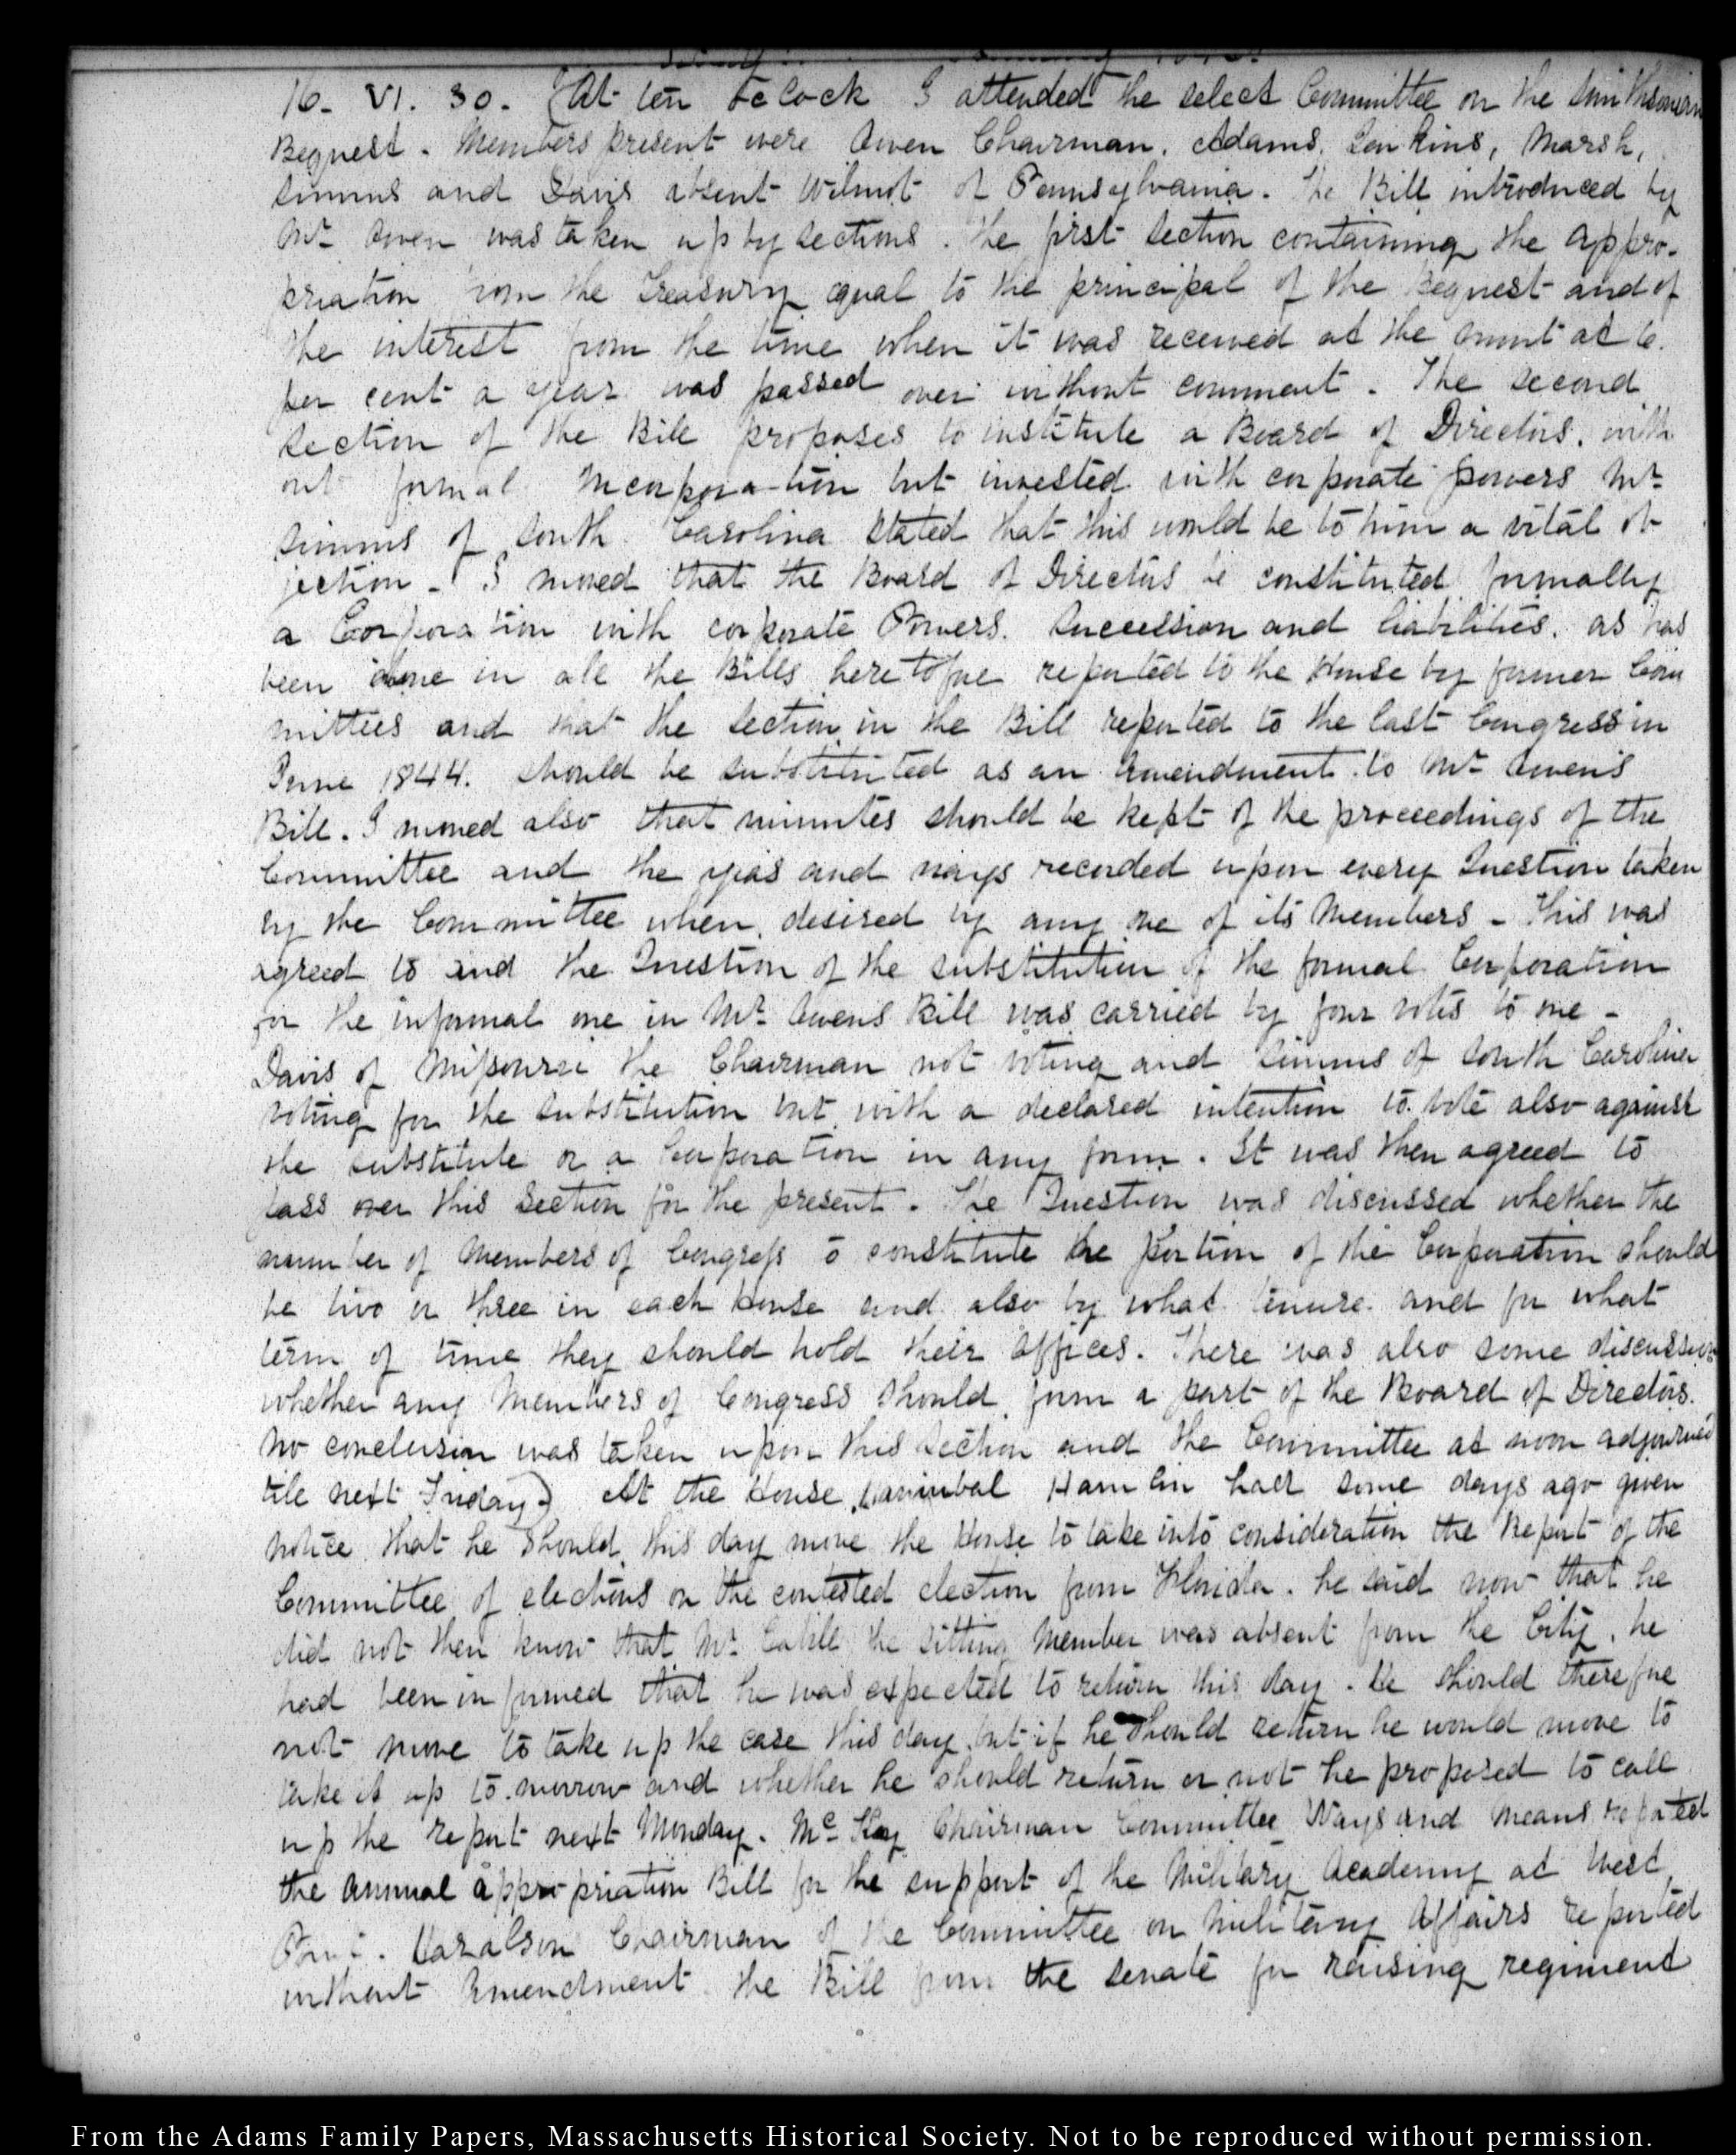 16. VI. 30. (At ten o'clock I attended the select Committee on the Smithsonian
Bequest. Members present were Owen Chairman. Adams. Jenkins, Marsh,
Simms and Davis absent Wilmot of Pennsylvania. The Bill introduced by
Mr Owen was taken up by sections. The first section containing the appro-
priation from the Treasury equal to the principal of the Bequest and of
the interest from the time when it was received at the mint at 6.
per cent a year was passed over without comment. The second
section of the Bill proposes to institute a Board of Directors. with
out formal Incorporation but invested with corporate powers Mr
Simms of South Carolina stated that this would be to him a vital ob-
jection - I moved that the Board of Directors be constituted formally
a Corporation with corporate Powers. Succession and liabilities. as has
been done in all the Bills heretofore reported to the House by former Com
mittees and that the section in the Bill reported to the last Congress in
June 1844. should be substituted as an Amendment to Mr Owen's
Bill. I moved also that minutes should be kept of the proceedings of the
Committee and the yeas and nays recorded upon every Question taken
by the Committee when desired by any one of its Members - This was
agreed to and the Question of the substitution of the formal Corporation
for the informal one in Mr Owens Bill was carried by four votes to one -
Davis of Missouri the Chairman not voting and Simms of South Carolina
voting for the substitution but with a declared intention to vote also against
the substitute or a Corporation in any form. It was then agreed to
pass over this section for the present. The Question was discussed whether the
number of Members of Congress to constitute the portion of the Corporation should
be two or three in each House and also by what tenure and for what
term of time they should hold their offices. There was also some discussion
whether any Members of Congress should form a part of the Board of Directors.
No conclusion was taken upon this section and the Committee at noon adjourned
till next Friday) At the House Hannibal Hamlin had some days ago given
notice that he should this day move the House to take into consideration the Report of the
Committee of elections on the contested election from Florida. he said now that he
did not then know that Mr Cabell the sitting Member was absent from the City, he
had been informed that he was expected to return this day. He should therefore
not move to take up the case this day but if he should return he would move to
take it up to-morrow and whether he should return or not he proposed to call
up the report next Monday. McKay Chairman Committee Ways and Means reported
the annual appropriation Bill for the support of the Military Academy at West
Point. Haralson Chairman of the Committee on Military Affairs reported
without Amendment the Bill from the Senate for raising regiment
From the Adams Family Papers, Massachusetts Historical Society. Not to be reproduced without permission.